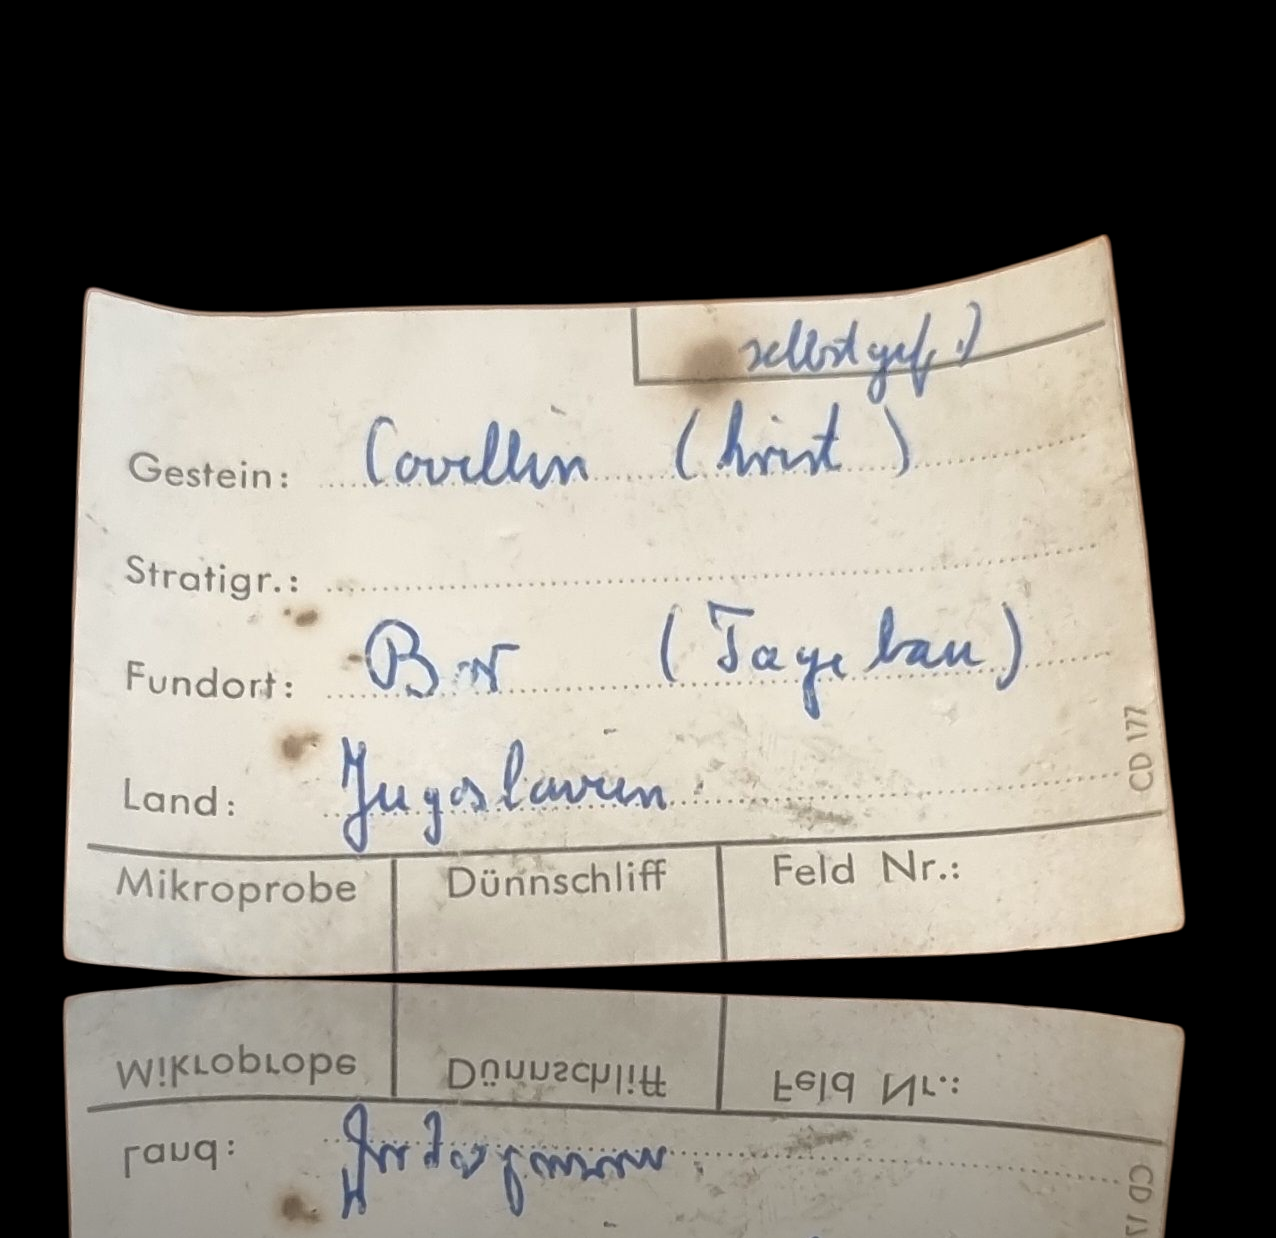 selbst gef.)
Gestein: Covellin ( )
Stratigr.:
Fundort: Bor (Tagebau)
Land: Jugoslavien
CD 177
Mikroprobe Dünnschliff Feld Nr.: